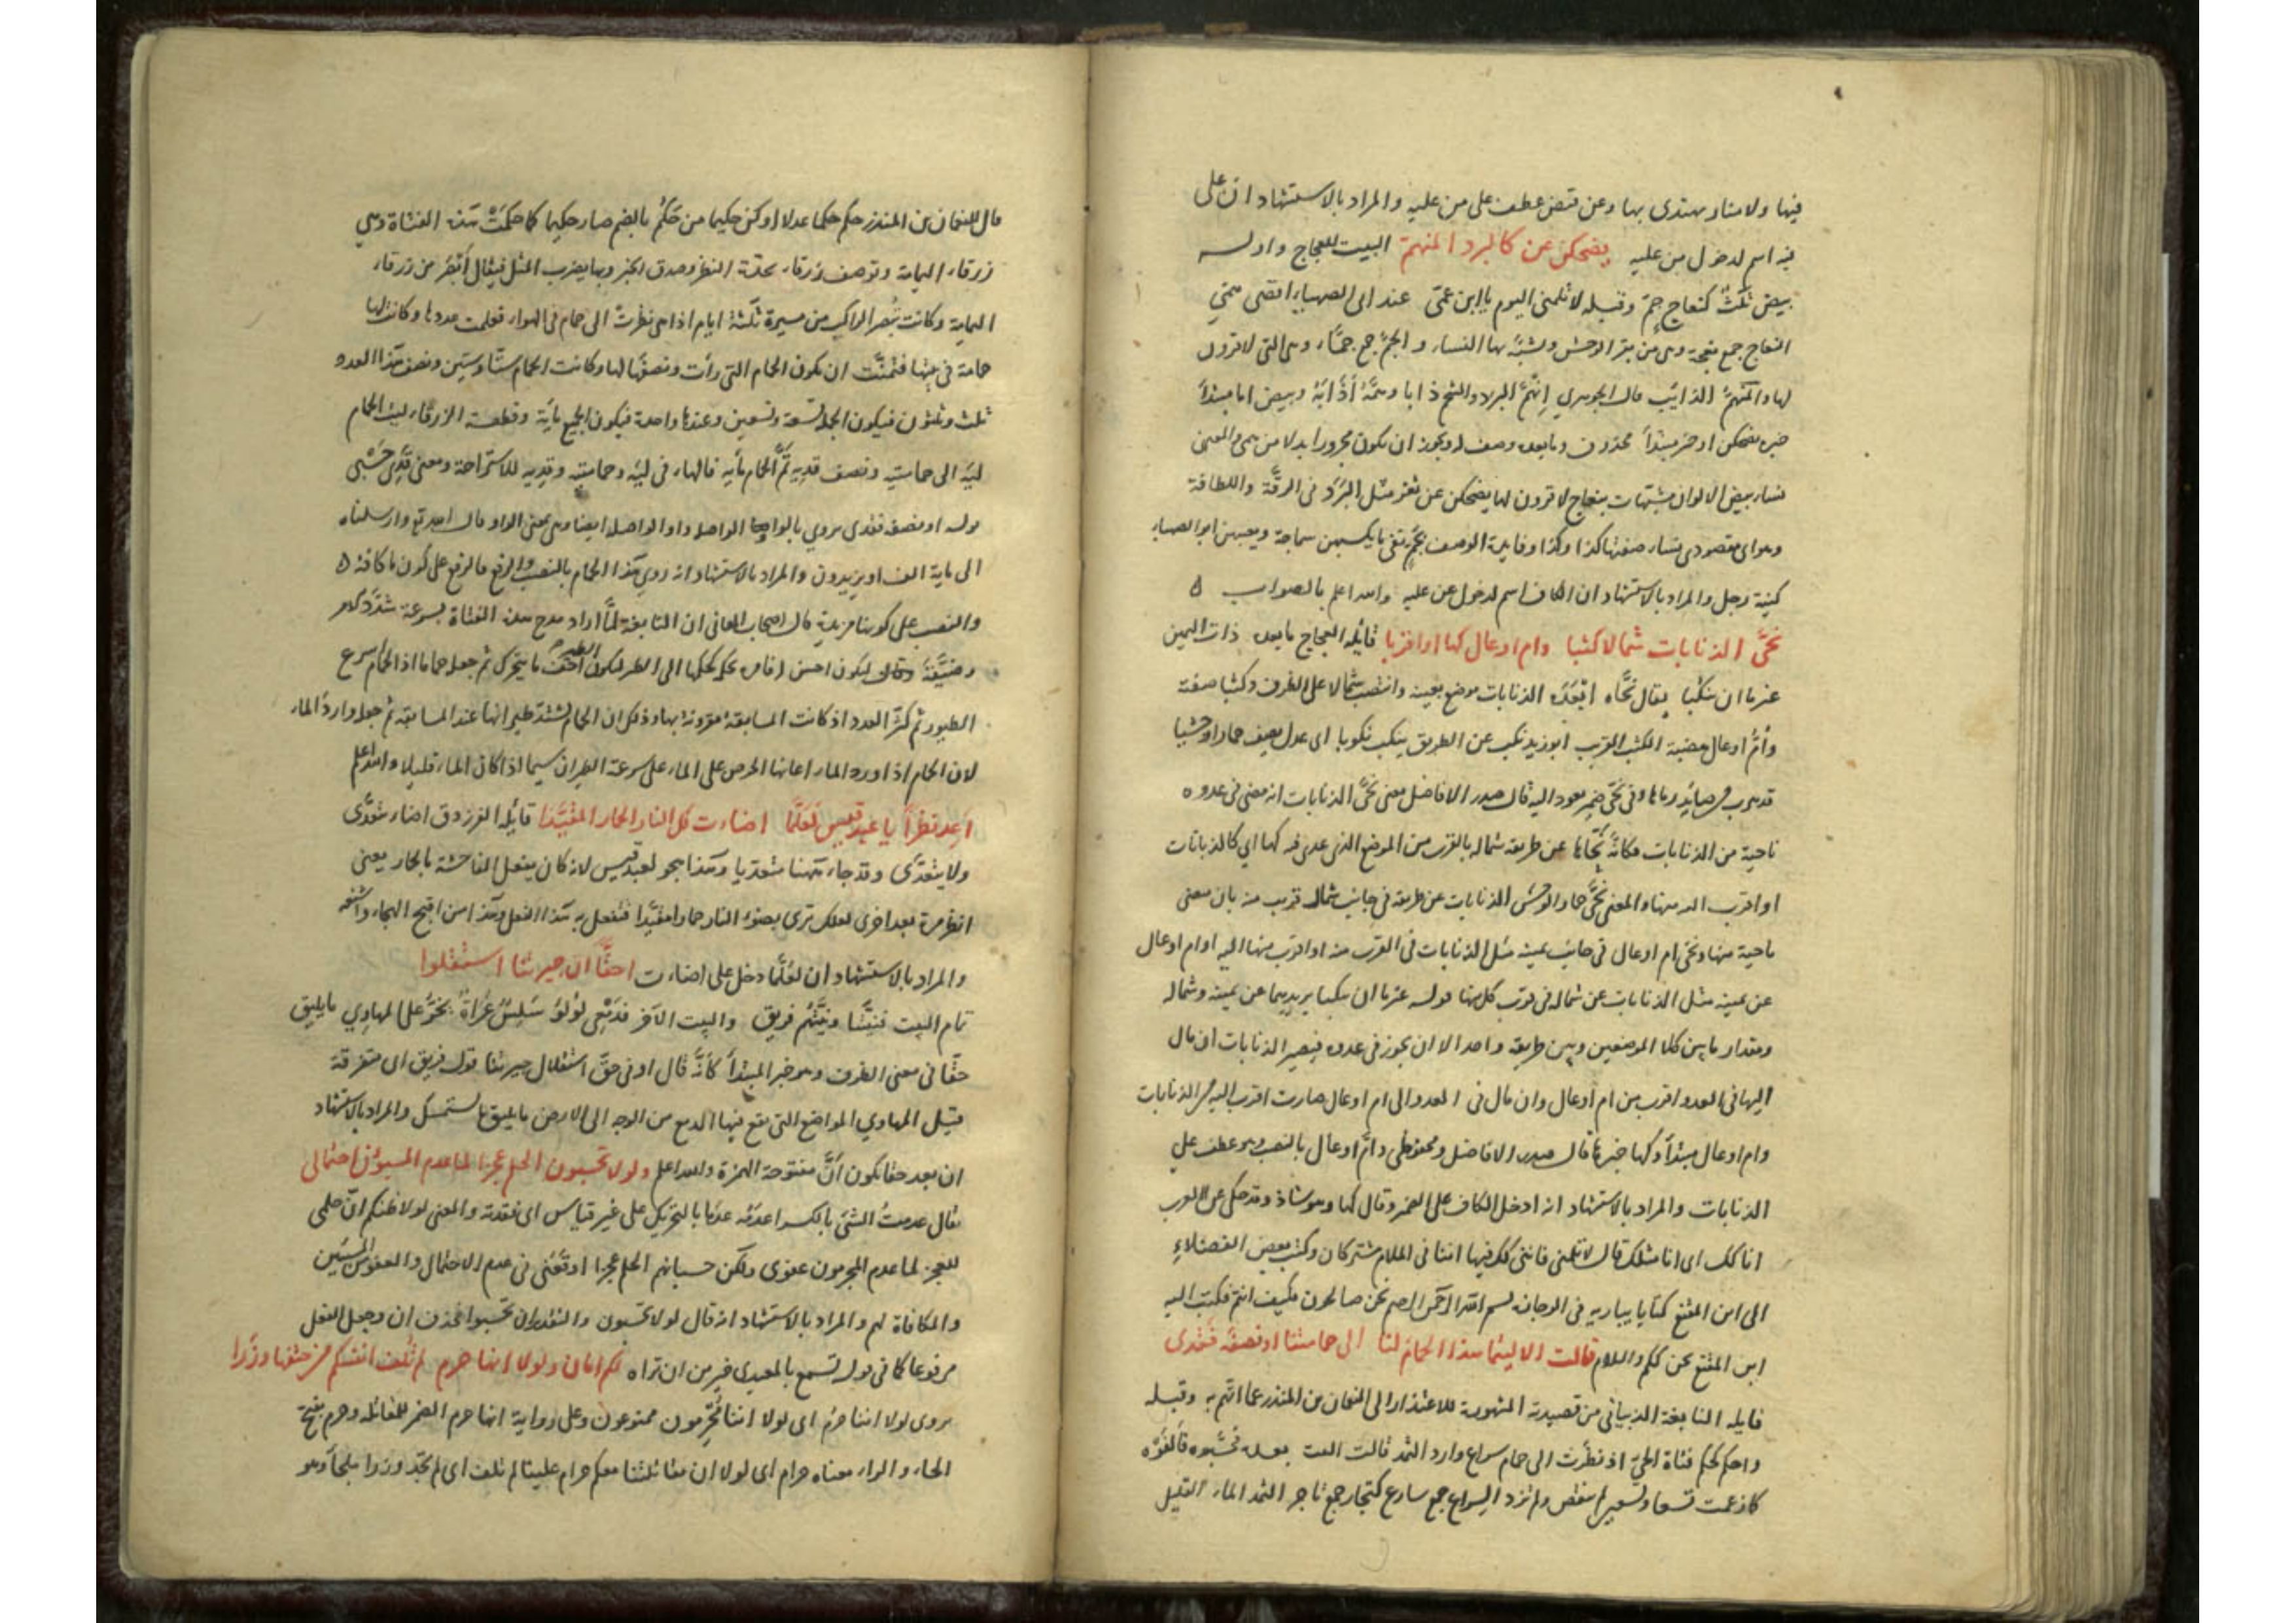 فيها ولا منار يهتدى بها وعن قيض عطف على من عليه والمراد بالاستشهاد ان على
فيه اسم لدخول من عليه يضحكن عن كالبرد المنهمّ البيت للعجاج واوله
بيض ثلثٌ كنعاج جمّ وقبله لا تلمنى اليوم يا ابن عمّى عند ابى الصهباء اقصى همّى
النعاج جمع نعجة وهى من بقر الوحش ويشبّه بها النساء و الجمّ جمع جمّاء وهى التى لا قرون
لها والمنهمّ الذائب قال الجوهري انهمّ البرد والشحم ذابا وهمّه أذابه وبيض اما مبتدأ
خبره يضحكن او خبر مبتدأ محذوف وما بعده وصف له ويجوز ان يكون مجرورا بدلا من همى والمعنى
نساء بيض الالوان مشبهات بنعاج لا قرون لها يضحكن عن ثغر مثل البَرَد فى الرقّة واللطافة
وهواى مقصودى نساء صفتها كذا وكذا وفايدة الوصف بجمّ نفى ما يكسبهن سماجة ويعيبهن ابو الصهباء
كنية رجل والمراد بالاستشهاد ان الكاف اسم لدخول عن عليه والله اعلم بالصواب ه
نحّى الذنابات شمالا كثبا وام اوعال كها او اقربا قايله العجاج ما بعده ذات اليمين
غير ما ان ينكبا يقال نحّاه ابعَدَه الذنابات موضع بعينه وانتصب شمالا على الظرف وكثبا صفته
وأمّ اوعال هضبة الكثب القريب ابو زيد نكب عن الطريق ينكب نكوبا اى عدل يصف حمارا وحشيا
قد هرب من صائد رماها وفى نحّى ضمير يعود اليه قال صدر الافاضل معنى نحّى الذنابات انه مضى فى عدوه
ناحية من الذنابات فكانّه نحّاها عن طريقه شماله بالقرب من الموضع الذى عدى فيه كها اى كالذنابات
او اقرب اليه منها والمعنى نحّى حمار الوحش الذنابات عن طريقه فى جانب شماله قريب منه بان مضى
ناحية منها ونحى ام اوعال فى جانب يمينه مثل الذنابات فى القرب منه او اقرب منها اليه او ام اوعال
عن يمينه مثل الذنابات عن شماله فى قرب كل منها قوله غير ما ان ينكبا يريد بهما عن يمينه وشماله
ومقدار ما بين كلا الموضعين وبين طريقه واحد الا ان يجوز فى عدوه فيصير الذنابات ان مال
اليها فى العدو اقرب من ام اوعال وان مال فى العدو الى ام اوعال صارت اقرب اليه من الذنابات
وام اوعال مبتدأ وكها خبرها قال صدر الافاضل ومحفوظى وامّ اوعال بالنصب وهو عطف على
الذنابات والمراد بالاستشهاد انه ادخل الكاف على المضمر وقال كها وهو شاذ وقد حكى عن العرب
انا كك اى انا مثلك قال لا تلمنى فاننى كك فيها اننا فى الملام مشتركان وكتب بعض الفضلاء
الى ابن المقفع كتابا يباريه فى الوجازة بسم الله الرحمن الرحيم نحن صالحون فكيف انتم فكتب اليه
ابن المقفع نحن ككم والسلام قالت الا ليتما هذا الحمام لنا الى حمامتنا او نصفُه فَقَدى
قايله النابغة الذبيانى من قصيدته المشهورة للاعتذار الى النعمان بن المنذر عما اتّهم به وقبله
واحكم كحكم فتاة الحيّ اذ نظرت الى حمام سراع وارد الثمد قالت البيت بعده فحسّبوه فألفَوه
كما زعمت تسعا وتسعين لم ينقص ولم تزد السراع جمع سارع كتجار جمع تاجر الثمد الماء القليل
قال للنعمان بن المنذر حكم حكما عدلا او كن حكيما من حَكُم بالضم صار حكيما كما حكمت هذه الفتاة وهى
زرقاء اليمامة وتوصف زرقاء بحدّة النظر وصدق الخبر وبها يضرب المثل فيقال أبصر من زرقاء
اليمامة وكانت تُبصر الراكب من مسيرة ثلثة ايام اذا هى نظرت الى حمام فى الهواء فعلمت عددها وكانت لها
حمامة فى بيتها فتمنّت ان يكون الحمام التى رأت ونصفها لها وكانت الحمام ستّا وستين ونصف هذا العدد
ثلث وثلثون فيكون الجملة تسعة وتسعين وعندها واحدة فيكون الجميع مأية وقطعت الزرقاء ليت الحمام
ليَه الى حمامتيه ونصف قديه تَمّ الحمام مأيه فالهاء فى ليَه وحمامتيه وقديه للاستراحة ومعنى قدى حَسْبى
قوله او نصفه فقدى يروى بالواو الواصل واو الواصل ايضا وهى بمعنى الواو قال الله تع وارسلناه
الى ماية الف او يزيدون والمراد بالاستشهاد انه روى هذا الحمام بالنصب والرفع فالرفع على كون ما كافة ه
والنصب على كونها مزيدة قال اصحاب المعانى ان النابغة لمّا اراد مدح هذه الفتاة بسرعة شدّد كلامه
وضيّقه وقال ليكون احسن اذا بحكم حكمها الى الطير ليكون الطير اخف ما يتحرك ثم جعله حماما اذ الحمام اسرع
الطيور ثم كثّر العدد اذ كانت المسابقة مقرونة بها وذلك ان الحمام تشتد طيرانها عند المسابقة ثم جعله وارد الماء
لان الحمام اذا ورد الماء اعانها الحرص على الماء على سرعة الطيران سيما اذا كان الماء قليلا والله اعلم
اعد نظرا يا عبد قيس لعلّما اضاءت لك النار الحمار المقيّدا قايله الفرزدق اضاء يتعدّى
ولا يتعدّى وقد جاء ههنا متعديا وهذا يهجو لعبد قيس لانه كان يفعل الفاحشة بالحمار يعنى
انظر مرة بعد اخرى لعلك ترى بضوء النار حمارا مقيّدا فتفعل به هذا الفعل وهذا من اقبح الهجاء واشنعه
والمراد بالاستشهاد ان لعلّما دخل على اضاءت احقّا ان جيرتنا استقلوا
تمام البيت فنيّتنا ونيّتهم فريق والبيت الآخر فدمعى لؤلؤ سَلِسٌ عُراهُ يخرّ على المهاوي ما يليق
حقّا فى معنى الظرف وهو خبر المبتدأ كأنّه قال او فى حقّ استقلال جيرتنا قوله فريق اى متفرقة
قيل المهاوي المواضع التى يقع فيها الدمع من الوجه الى الارض ما يليق ما يستمسك والمراد بالاستشهاد
ان بعد حقا يكون أنّ مفتوحة الهمزة والله اعلم ولولا تحسبون الحلم عجزا لما عدم المسيؤن احتمالى
يقال عدمتُ الشئ بالكسر اعدَمُه عدَما بالتحريك على غير قياس اى فقدته والمعنى لولا ظنكم انّ حلمى
للعجز لما عدم المجرمون عفوى ولكن حسبانهم الحلم عجزا اوقعنى فى عدم الاحتمال والعفو من المسيئين
والمكافاة لهم والمراد بالاستشهاد انه قال لولا تحسبون والتقدير ان تحسبوا فحذف ان وجعل الفعل
مرفوعا كما فى قوله تسمع بالمعيدى خير من ان تراه لكم امان ولولا انها حرم لم تُلف انفسكم من حتفها وزرا
يروى لولا اننا حرُم اى لولا اننا مُحرِمون ممنوعون وعلى رواية انها حرم الضمير للمقاتله وحرم بفتح
الحاء والراء معناه حرام اى لولا ان مقاتلتنا معكم حرام علينا لم تلف اى لم تجد وزرا ملجأ وهو